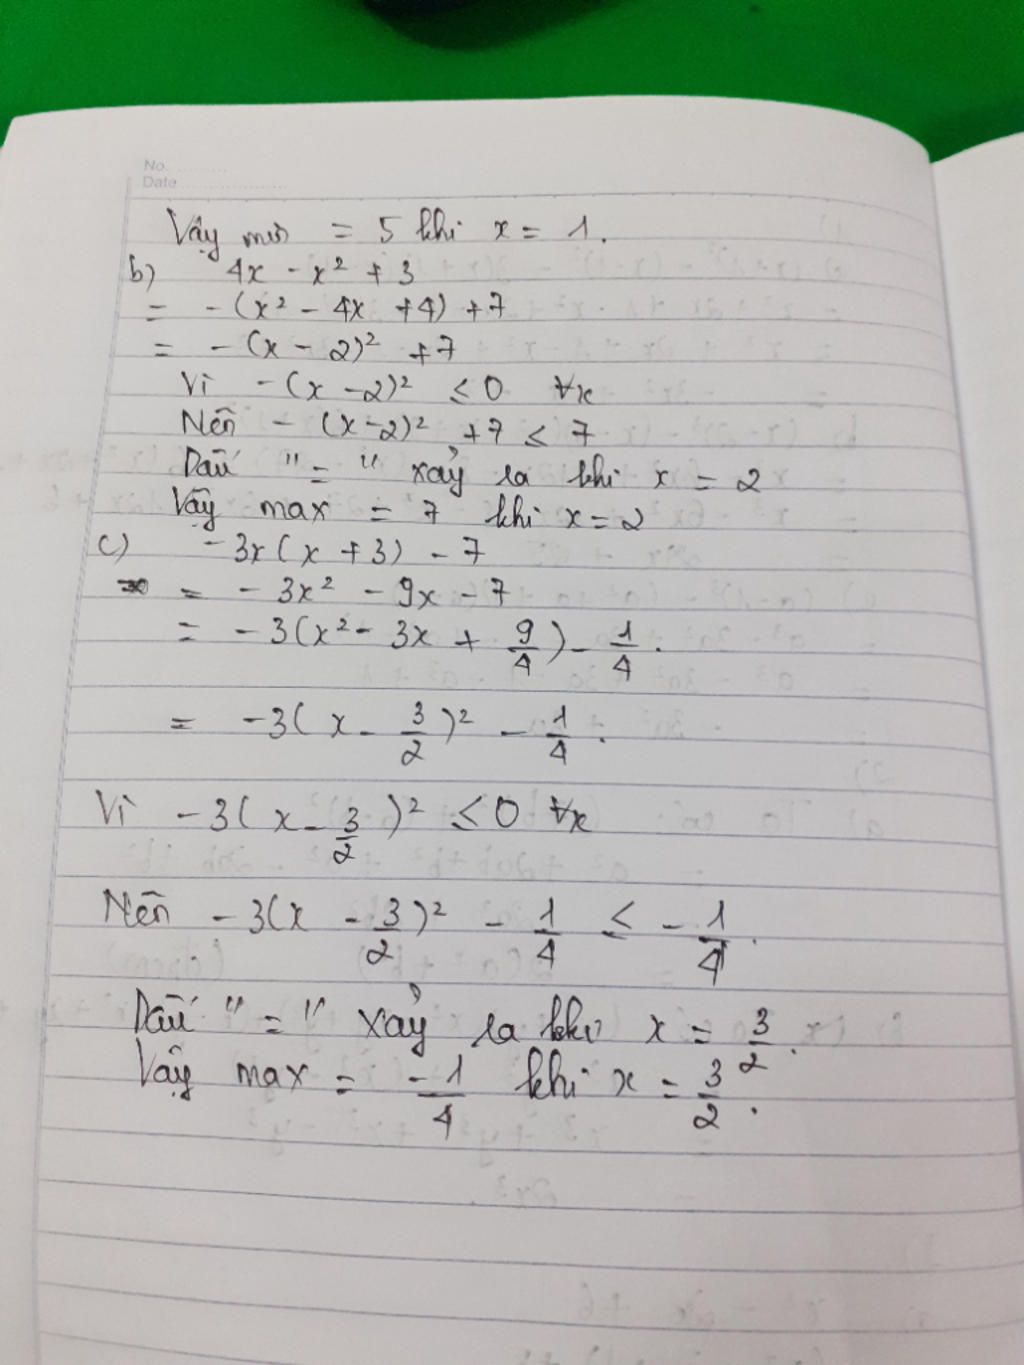 No. ..........
Date ....................
Vậy min = 5 khi x = 1.
b) 4x - x² + 3
= -(x² - 4x + 4) + 7
= -(x - 2)² + 7
Vì -(x - 2)² ≤ 0 ∀x
Nên -(x-2)² + 7 ≤ 7
Dấu " = " xảy ra khi x = 2
Vậy max = 7 khi x = 2
c) -3x(x + 3) - 7
= -3x² - 9x - 7
= -3(x² - 3x + 9/4) - 1/4.
= -3(x - 3/2)² - 1/4.
Vì -3(x - 3/2)² ≤ 0 ∀x
Nên -3(x - 3/2)² - 1/4 ≤ -1/4.
Dấu " = " xảy ra khi x = 3/2.
Vậy max = -1/4 khi x = 3/2.